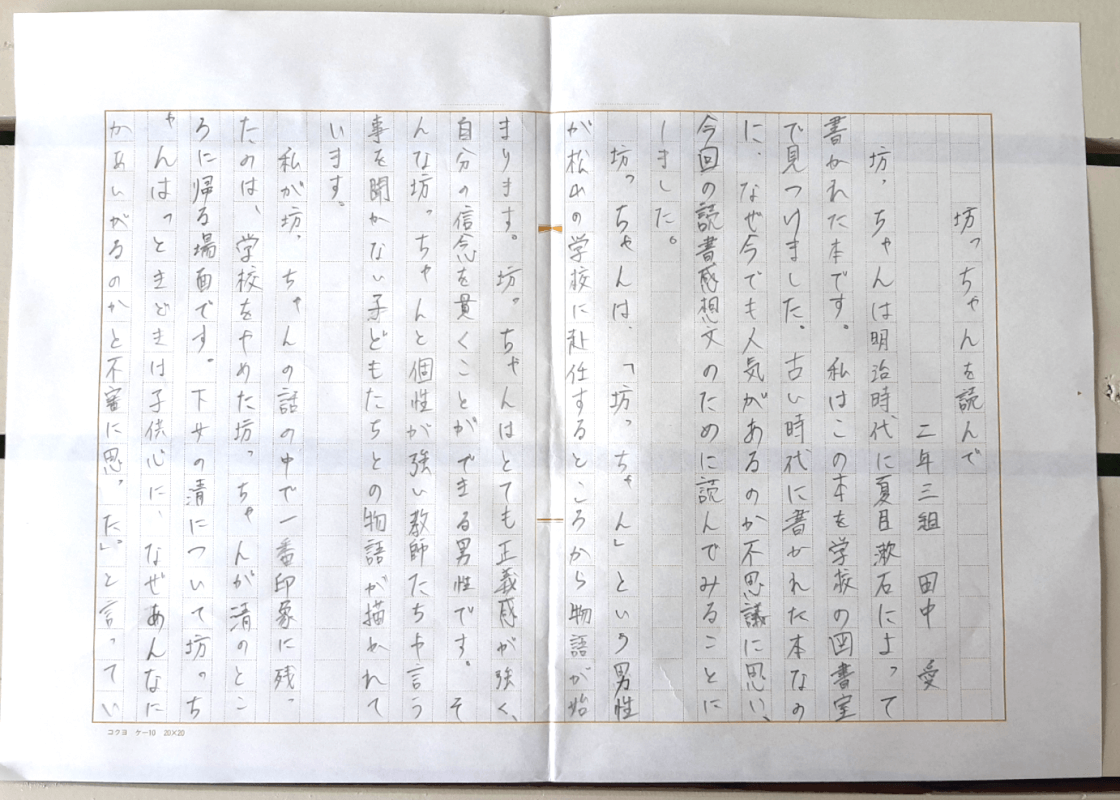 坊っちゃんを読んで
二年三組 田中 愛
坊っちゃんは明治時代に夏目漱石によって
書かれた本です。私はこの本を学校の図書室
で見つけました。古い時代に書かれた本なの
に、なぜ今でも人気があるのか不思議に思い、
今回の読書感想文のために読んでみることに
しました。
坊っちゃんは、「坊っちゃん」という男性
が松山の学校に赴任するところから物語が始
まります。坊っちゃんはとても正義感が強く、
自分の信念を貫くことができる男性です。そ
んな坊っちゃんと個性が強い教師たちや言う
事を聞かない子どもたちとの物語が描かれて
います。
私が坊っちゃんの話の中で一番印象に残っ
たのは、学校をやめた坊っちゃんが清のとこ
ろに帰る場面です。下女の清について坊っち
ゃんは「ときどきは子供心に、なぜあんなに
かあいがるのかと不審に思った。」と言ってい
コクヨ ケー10 20×20